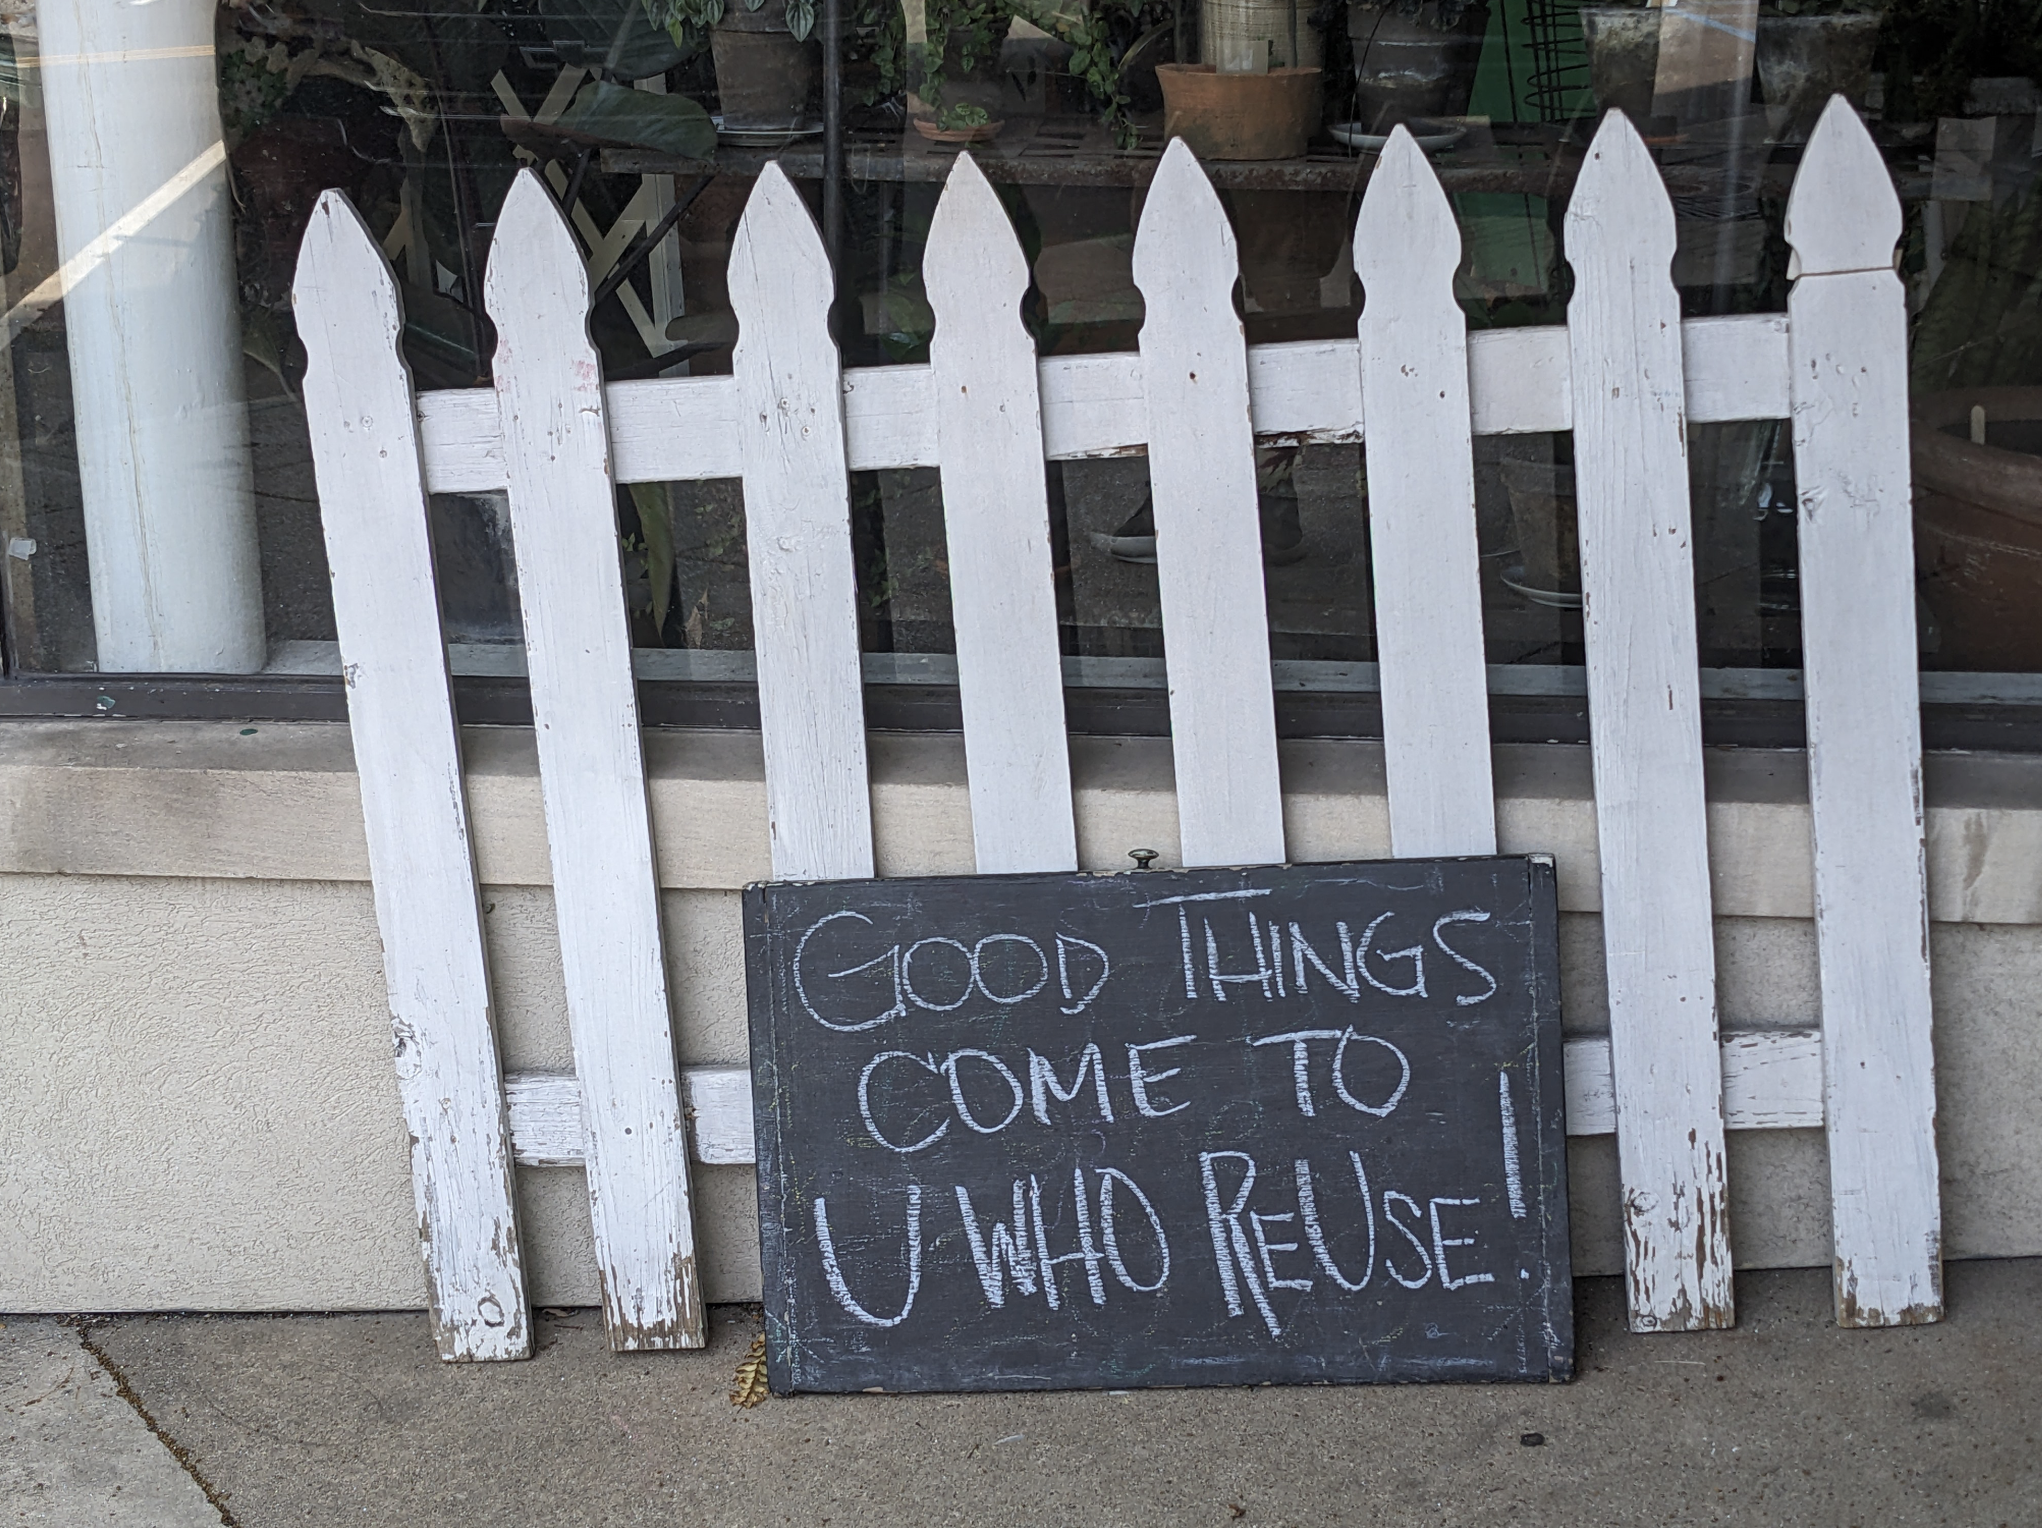 GOOD THINGS
COME TO
U WHO REUSE!